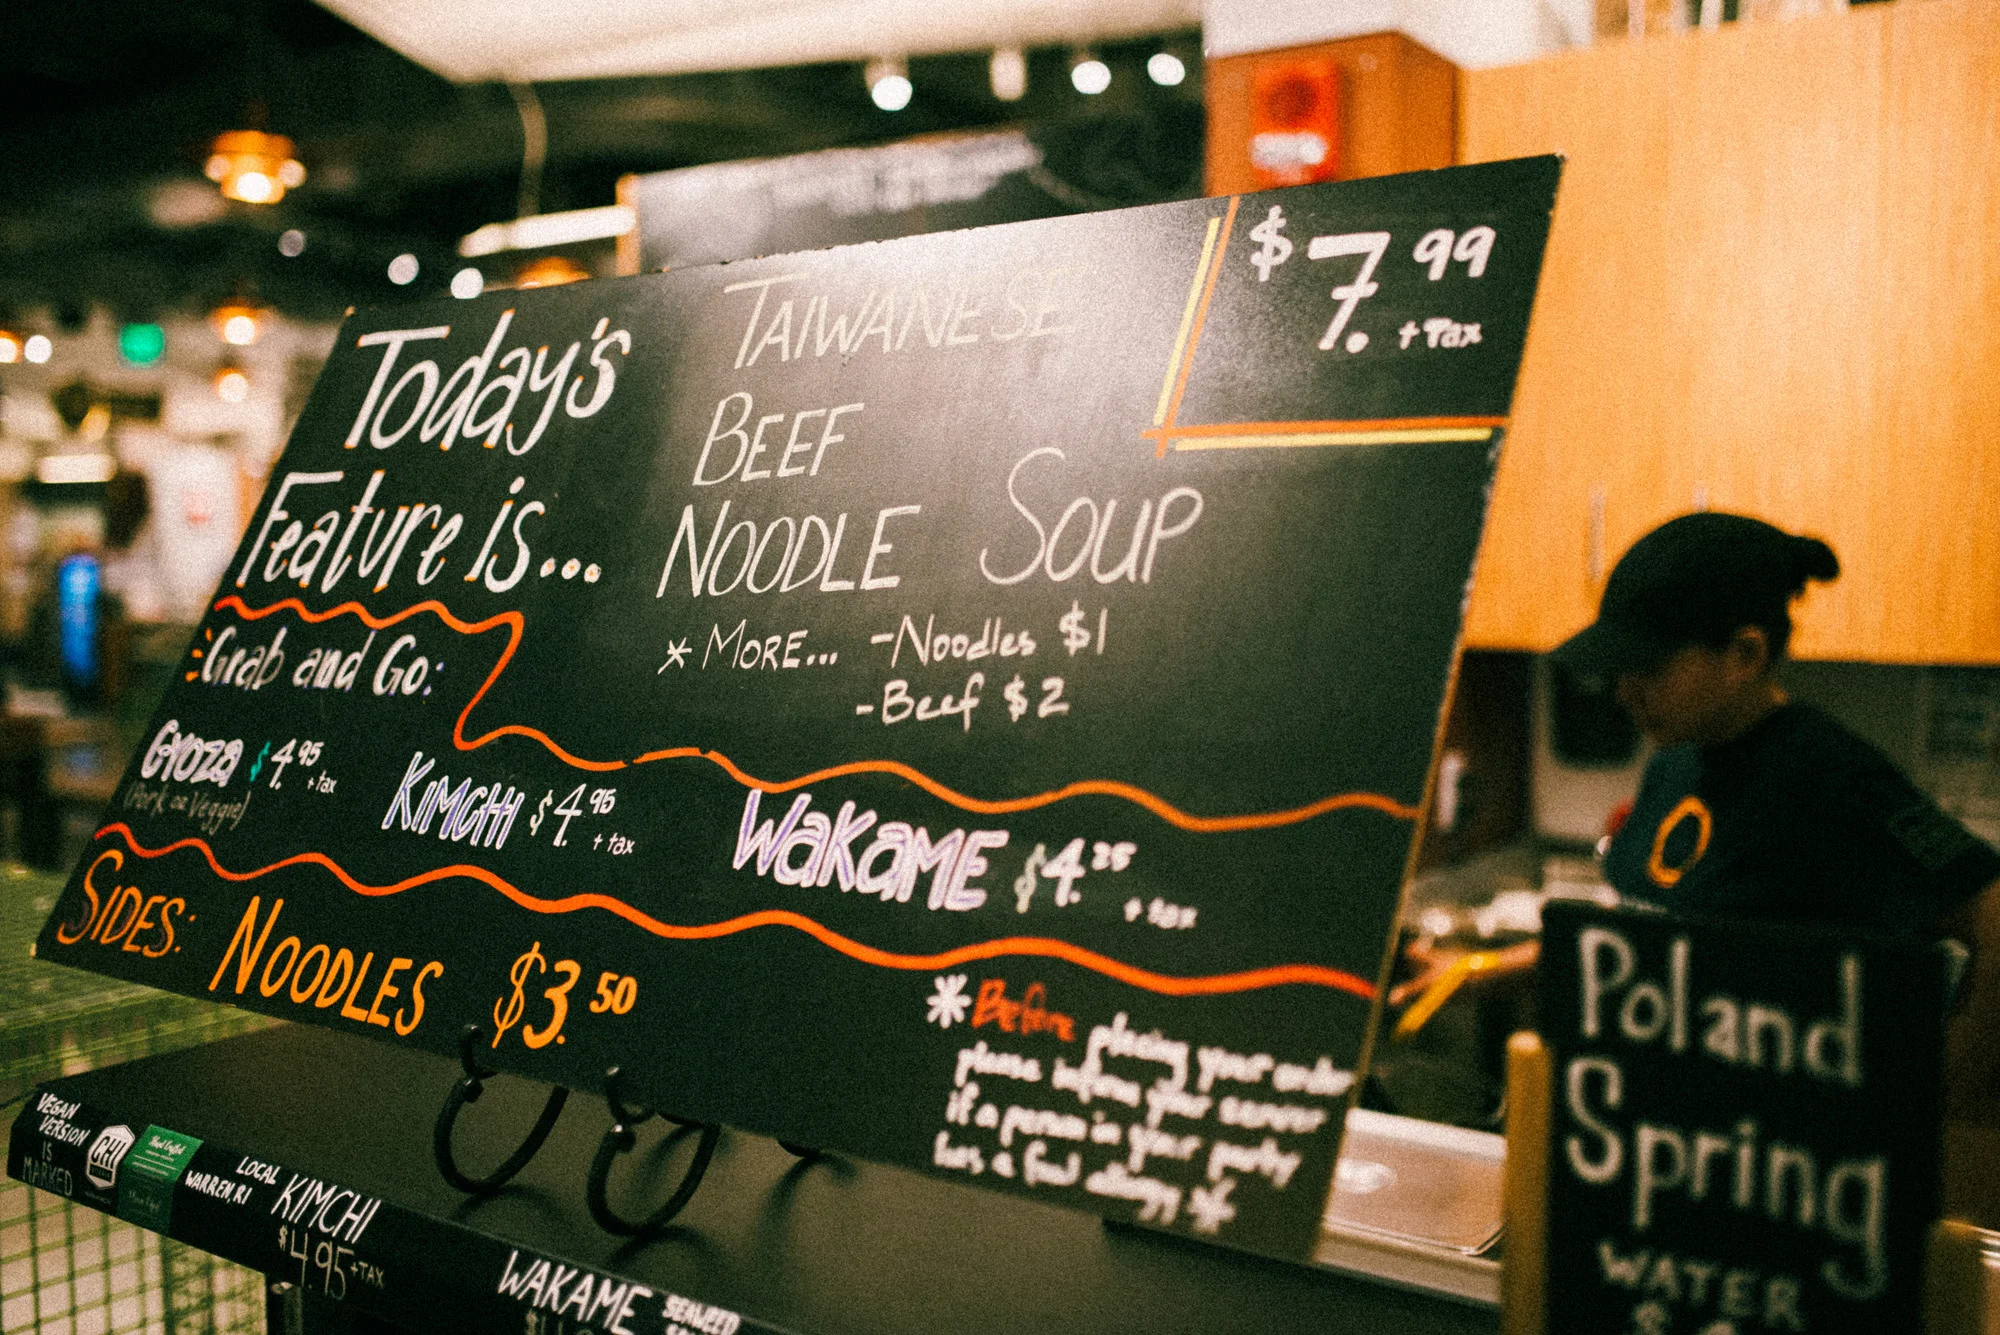 Today's
Feature is...
TAIWANESE
BEEF
NOODLE SOUP
* MORE... -Noodles $1
-Beef $2
$7.99
+ Tax
Grab and Go:
Gyoza $4.95
+ tax
(Pork or Veggie)
KIMCHI $4.95
+ tax
WAKAME $4.25
+ tax
SIDES: NOODLES $3.50
* Before placing your order
please inform your server
if a person in your party
has a food allergy *
VEGAN
VERSION
IS
MARKED
CHI
LOCAL
WARREN, RI
KIMCHI
$4.95 +TAX
WAKAME
SEAWEED
Poland
Spring
WATER